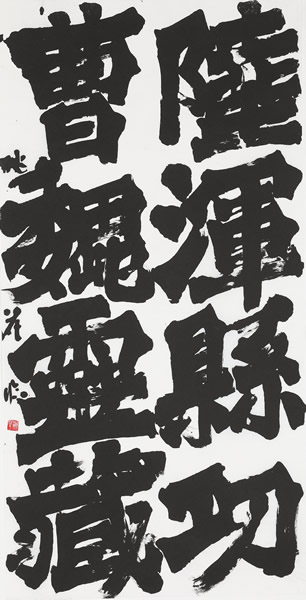 陸渾縣功
曹魏靈藏